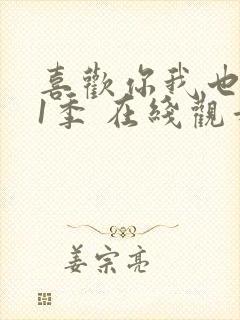 喜歡你我也
1季 在綫觀
姜宗亮